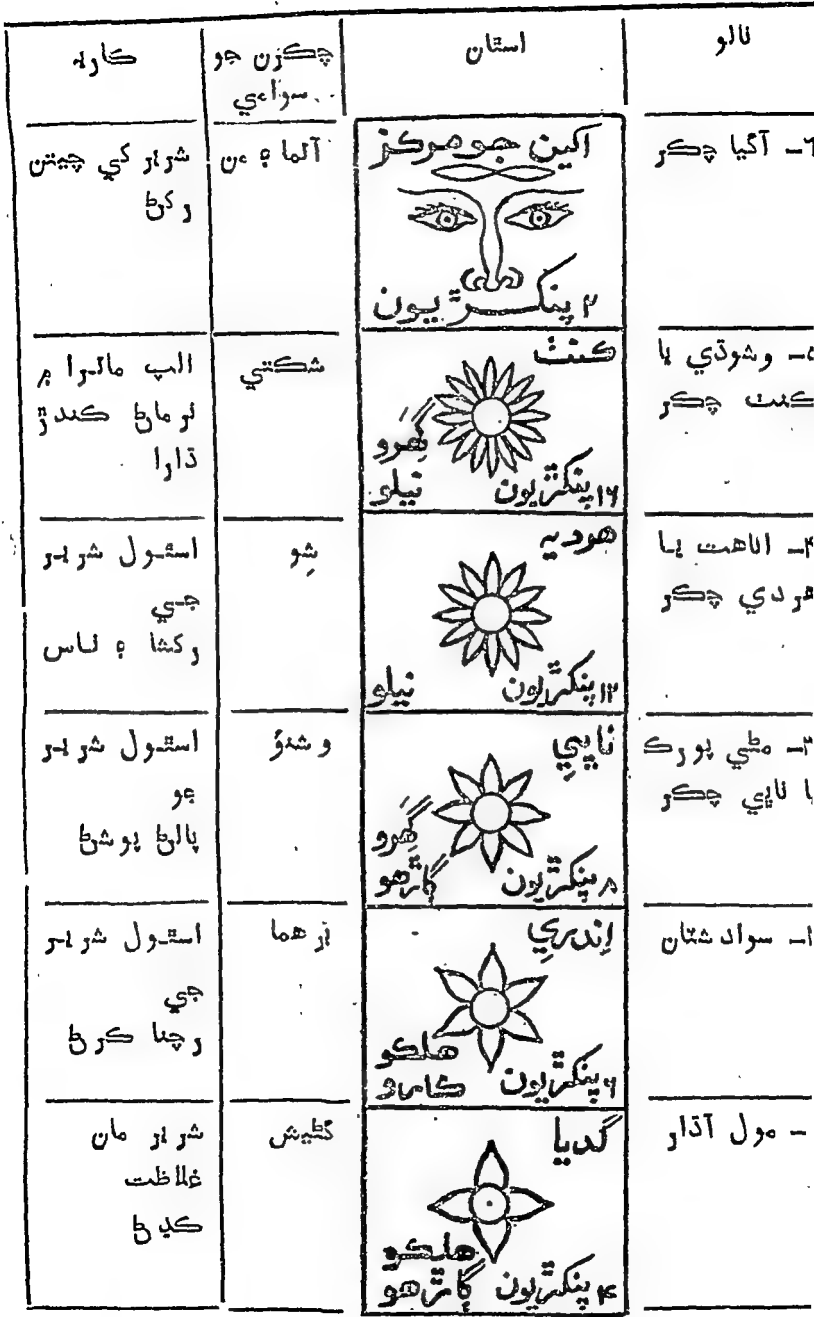 نالو
استان
چڪرن جو
سوامي
ڪاريه
٦– آگيا چڪر
اکين جو مرڪز
٢ پنکڙيون
آتما ۽ من
شرير کي چيتن
رکڻ
٥– وشوڌي يا
ڪنٺ چڪر
ڪنٺ
گهرو
نيلو
١٦ پنکڙيون
شڪتي
الپ ماترا ۾
نرماڻ ڪندڙ
ڌارا
٤– اناهت يا
هردي چڪر
هرديه
١٢ پنکڙيون
نيلو
شِو
استول شرير
جي
رکشا ۽ ناس
٣– مڻي پورڪ
يا ناڀي چڪر
ناڀي
گهرو
ڳاڙهو
٨ پنکڙيون
وشنوُ
استول شرير
جو
پالڻ پوشڻ
سواد شتان
اِندري
هلڪو
٦ پنکڙيون
برهما
استول شرير
جي
رچنا ڪرڻ
– مول آڌار
گديا
هلڪو
ڳاڙهو
٤ پنکڙيون
گڻيش
شرير مان
غلاظت
ڪڍڻ